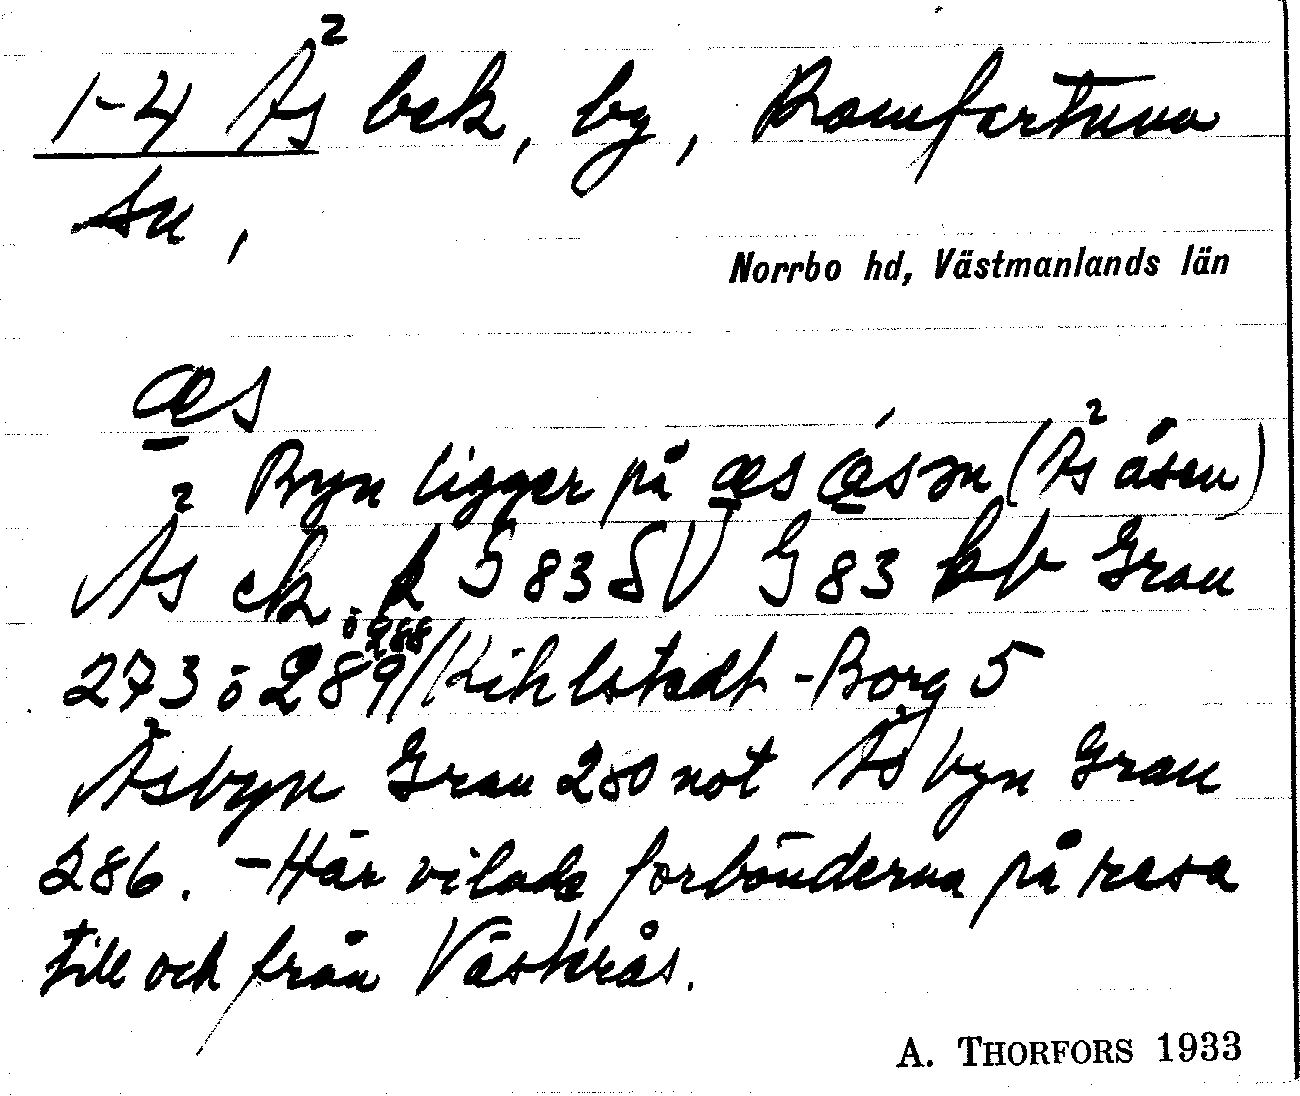 1-4 Ås bek, by, Romfartuna
sn,
Norrbo hd, Västmanlands län
æs
Byn ligger på æs åsən (Ås åsen)
Ås ek. k G 83 SV G 83 Grau
ö 288
273 ö 289/Kihlstedt-Borg 5
Åsbyn Grau 280 not Ås byn Grau
286. - Här vilade forbönderna på resa
till och från Västerås.
A. THORFORS 1933